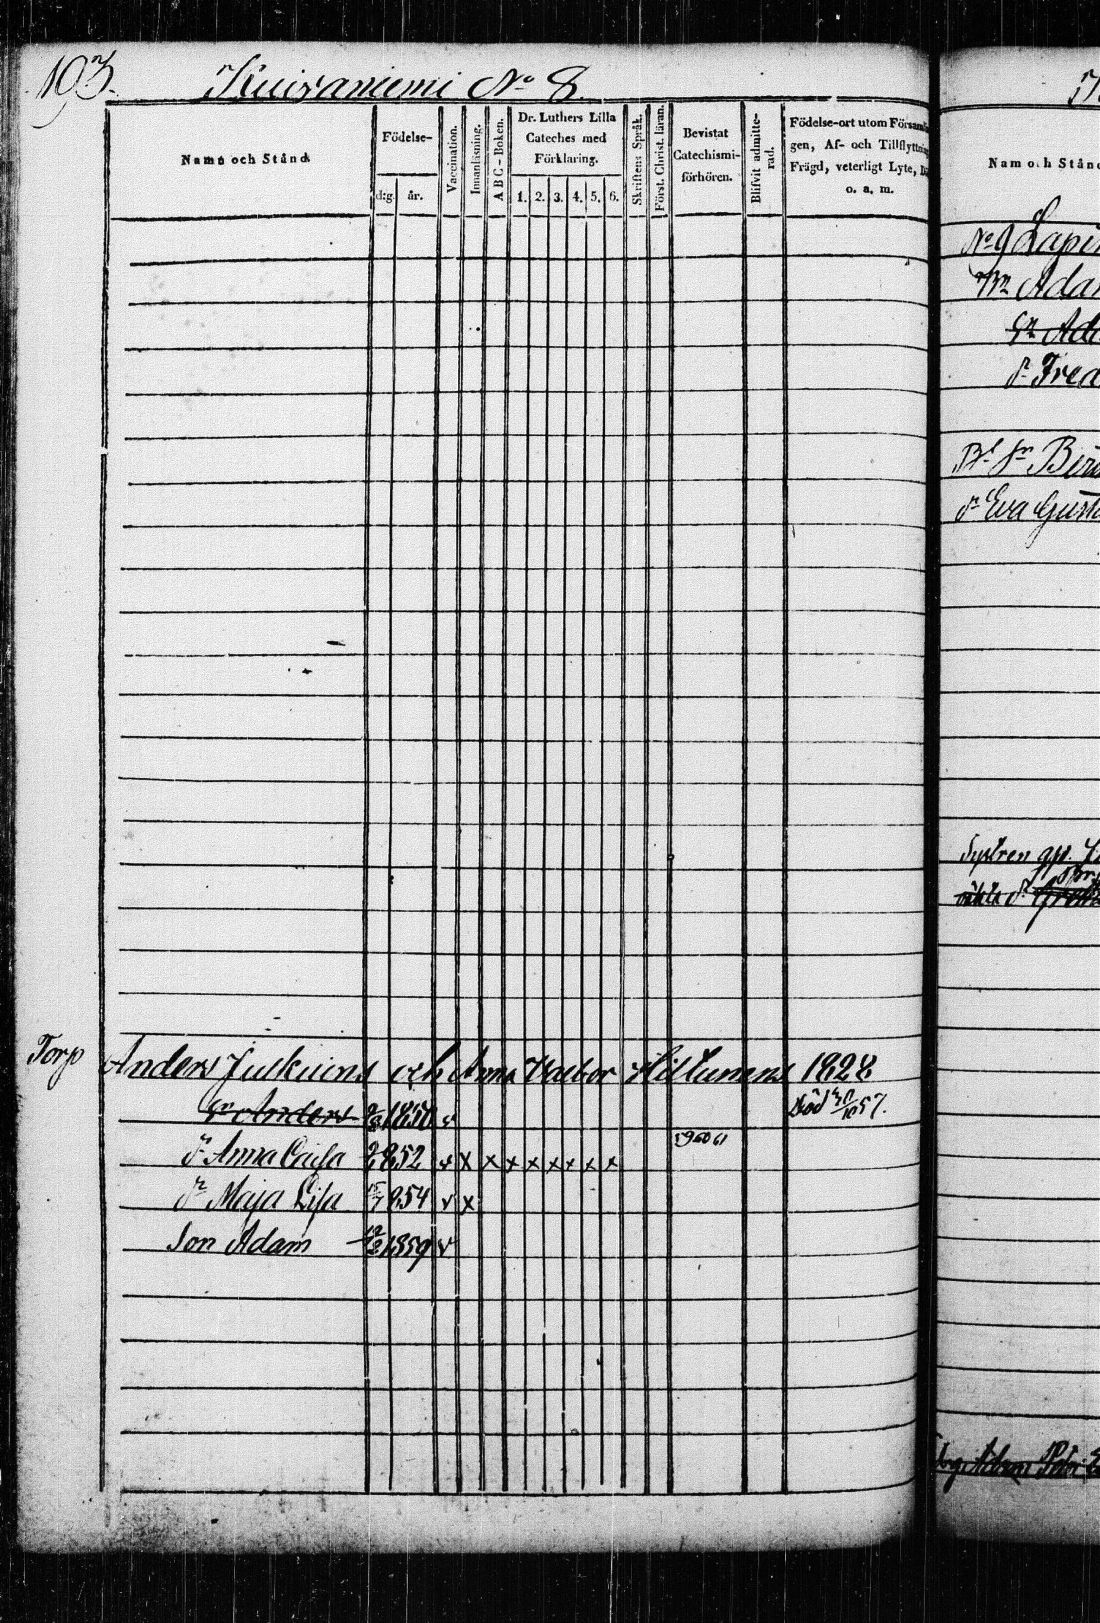 193. Kuivaniemi No 8.
Namn och Stånd
Födelse-
d:g. år.
Vaccination.
Innanläsning.
A B C - Boken.
Dr. Luthers Lilla
Cateches med
Förklaring.
1. 2. 3. 4. 5. 6.
Skriftens Språk.
Först. Christ. läran.
Bevistat
Catechismi-
förhören.
Blifvit admitte-
rad.
Födelse-ort utom Försam
gen, Af- och Tillflyttning
Frägd, veterligt Lyte,
o. a. m.
Torp Anders Juskuins och Anna Valbor Hiltunens 1828
Sn Anders 1850 v Död 57.
dr Anna Caisa 852 x x x x x x x x x 59 60 61
dr Maja Lisa 854 v x
Son Adam 1859 v
Nam och Stånd
No 9 Lapin
Adam
Sn Ad
dr Fred
dr Eva Gust
Systren